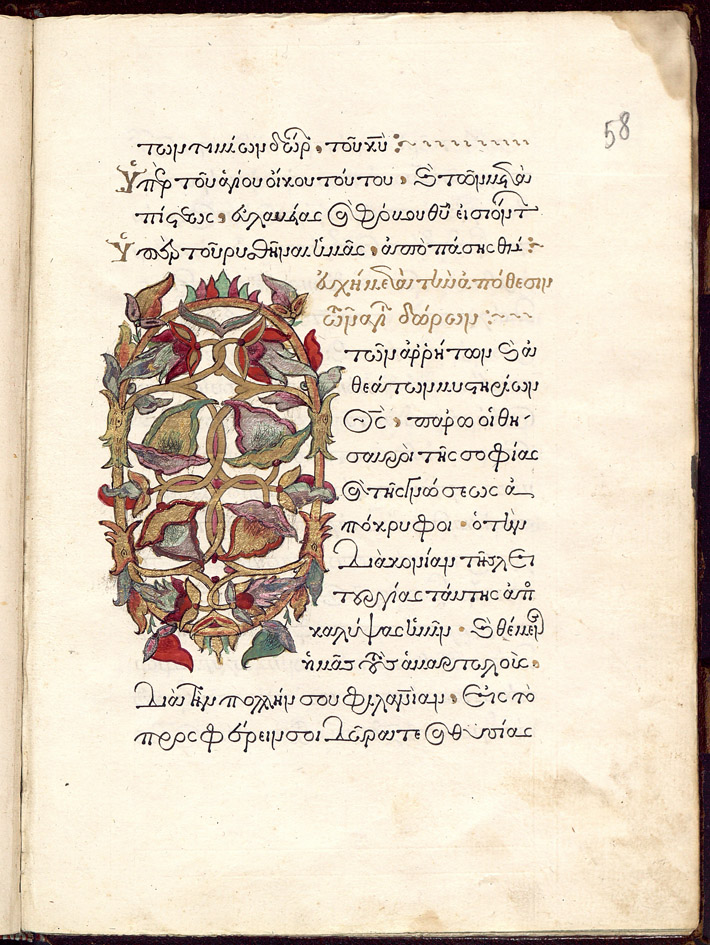 58
τῶν τιμίων δώρ, τοῦ κυ :~
Ὑπὲρ τοῦ ἁγίου οἴκου τούτου, καὶ τῶν μετὰ
πίστεως, εὐλαβείας καὶ φόβου θυ εἰσιόντ
Ὑπὲρ τοῦ ρυσθῆναι ἡμᾶς, ἀπὸ πάσης θλι :~
εὐχὴ μετὰ τὴν ἀπόθεσιν
τῶν ἁγί δώρων :~
τῶν ἀρρήτων καὶ ἀ
θεάτων μυστηρίων
θς, παρ ω οἱ θη-
σαυροὶ τῆς σοφίας
καὶ τῆς γνώσεως ἀ
πόκρυφοι. ὁ τὴν
διακονίαν τῆς λει
τουργίας ταύτης ἀπο
καλύψας ἡμῖν. καὶ θέμεν
ἡμᾶς τοὺς ἁμαρτωλούς.
διὰ τὴν πολλήν σου φιλανίαν, εἰς τὸ
προσφέρειν σοι δῶρα τε καὶ θυσίας